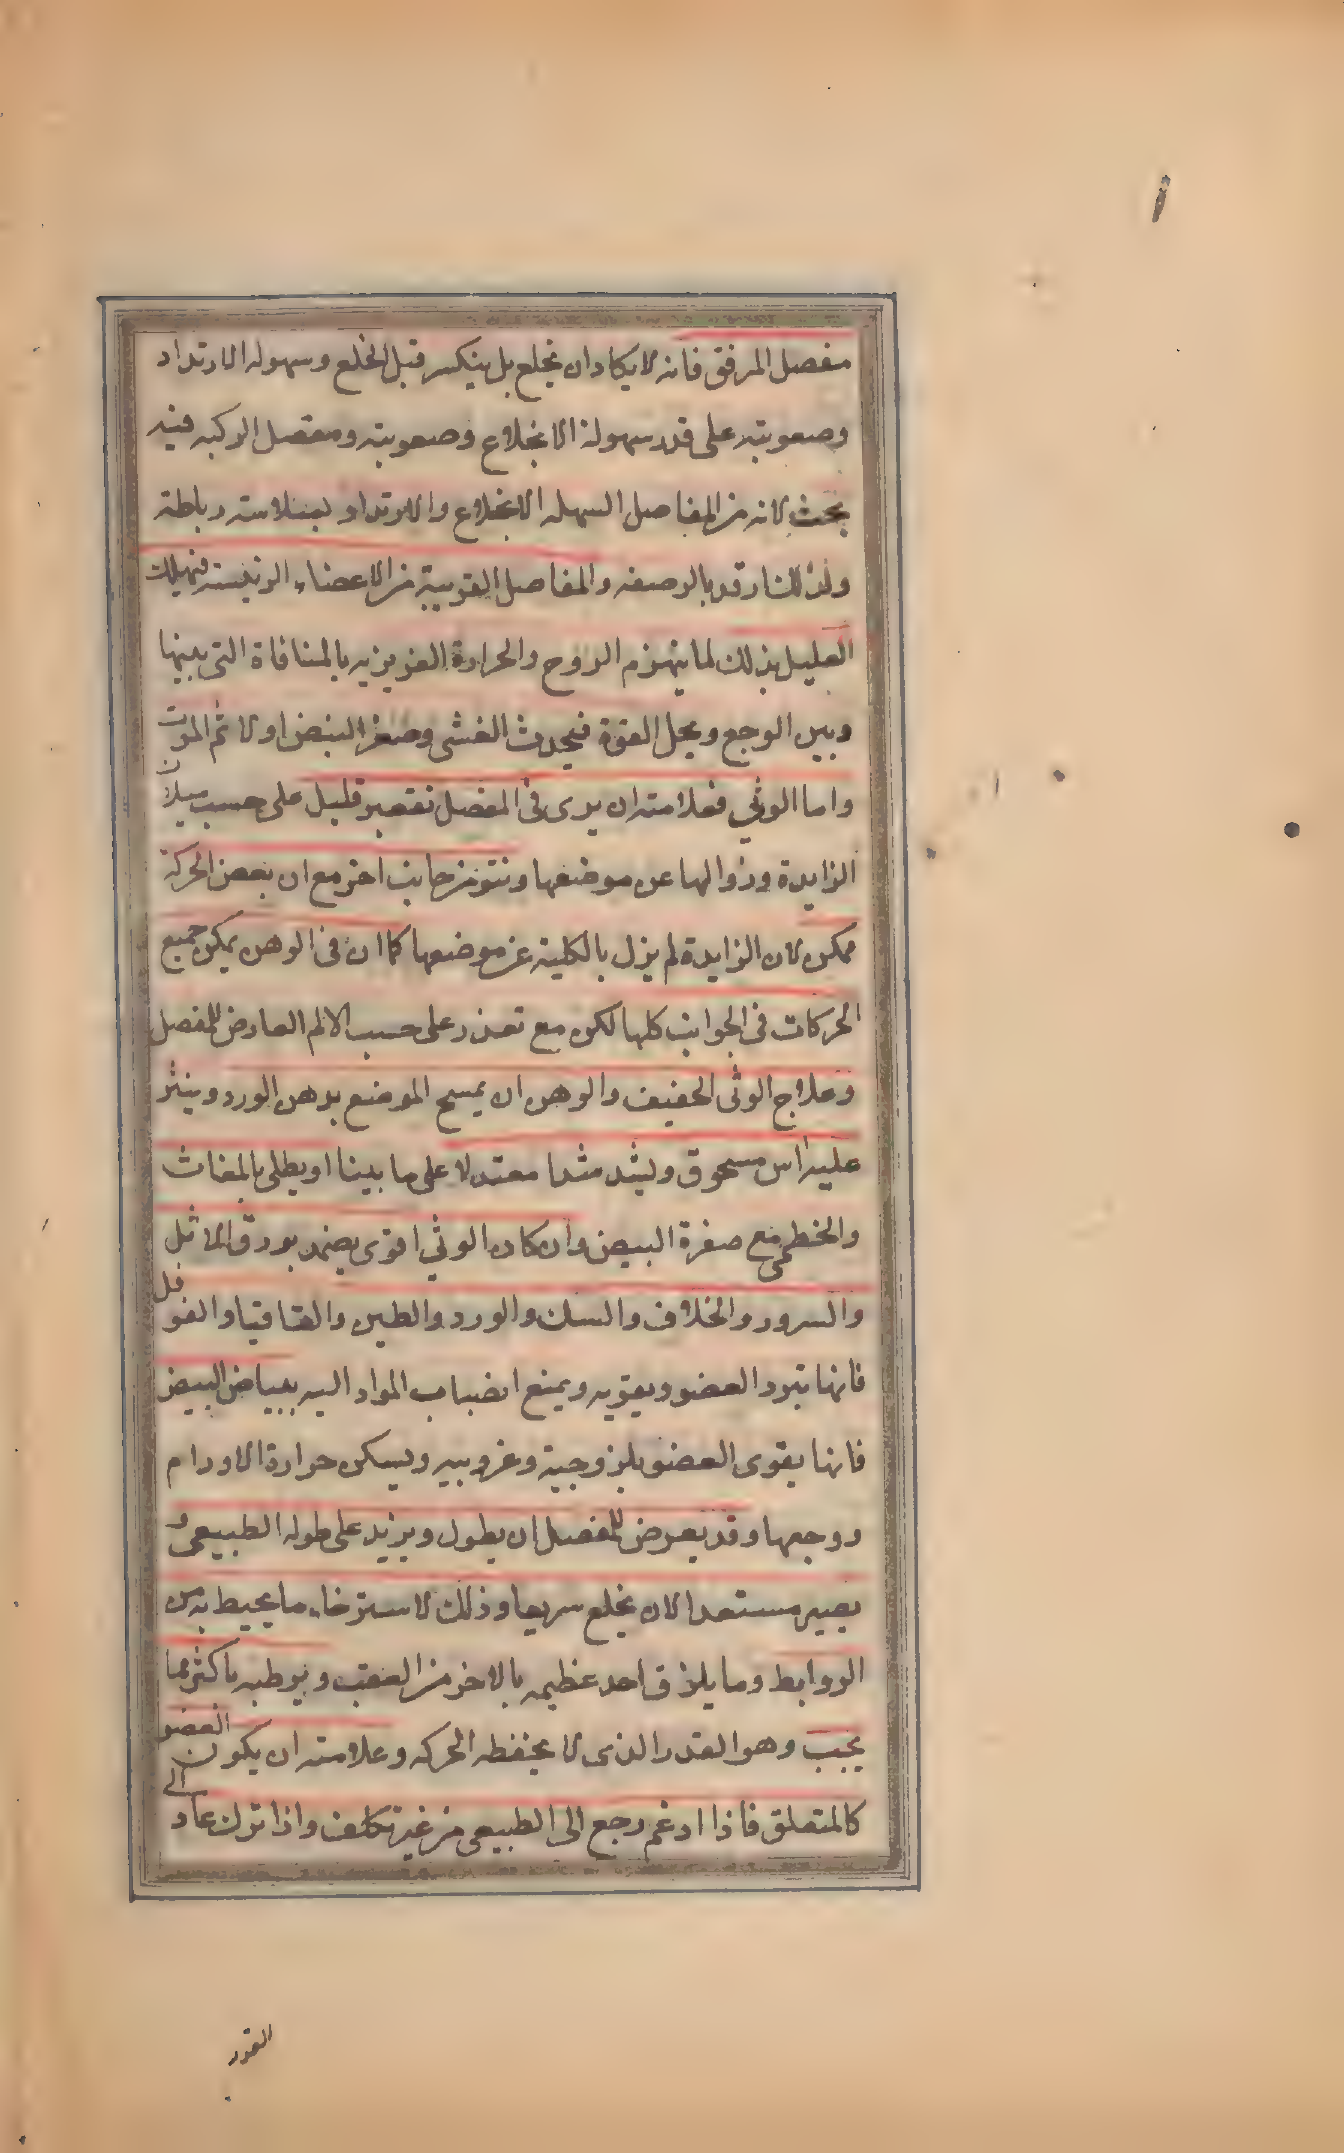 مفصل المرفق فانه لا يكاد ان يخلع بل ينكسر قبل الخلع وسهوله الارتداد
وصعوبته على قدر سهولة الانخلاع وصعوبته ومفصل الركبه فيه
بحث لانه من المفاصل السهله الانخلاع والارتداد لسلاسته رباطته
ولذلك ارقد بالرصفه والمفاصل القريبة من الاعضاء الرئيسته فيهلك
العليل بذلك لما ينهزم الروح والحرارة الغريزيه بالمنافاة التى بينها
وبين الوجع ويحل القوة فيحدث الغشى وصغر النبض اولا ثم الموت
واما الوثي فعلامته ان يرى فى المفصل تقعير قليل على حسب ميلان
الزايدة وزوالها عن موضعها ونتو من جانب اخر مع ان بعض الحركة
ممكن لان الزايدة لم يزل بالكلية عن موضعها كما ان فى الوهن يمكن جميع
الحركات فى الجوانب كلها لكن مع تعذر على حسب الالم العارض للمفصل
وعلاج الوثى الخفيف والوهن ان يمسح الموضع بدهن الورد وينثر
عليه اس مسحوق ويشد شدا معتدلا على ما بينا او يطلى بالمغاث
والخطمى مع صفرة البيض وان كان الوثي اقوى يضمد بورق الاثل
والسرو والخلاف والسك والورد والطين والقاقيا والفوفل
فانها تبرد العضو ويقويه ويمنع انضباب المواد اليه ببياض البيض
فانها يقوى العضو بلزوجية وغرويية ويسكن حرارة الاورام
ووجعها وقد يعرض للمفصل ان يطول ويزيد على طوله الطبيعى و
يصير مستعدا لان يخلع سريعا وذلك لاسترخاء ما يحيط به من
الروابط وما يلزق احد عظيمه بالاخر من العقب ويوطبه باكثر مما
يجب وهو القدر الذى لا يحفظه الحركه وعلامته ان يكون العضو
كالمتعلق فاذا ادغم رجع الى الطبيعى من غير تكلف واذا ترك عاد الى
القدر